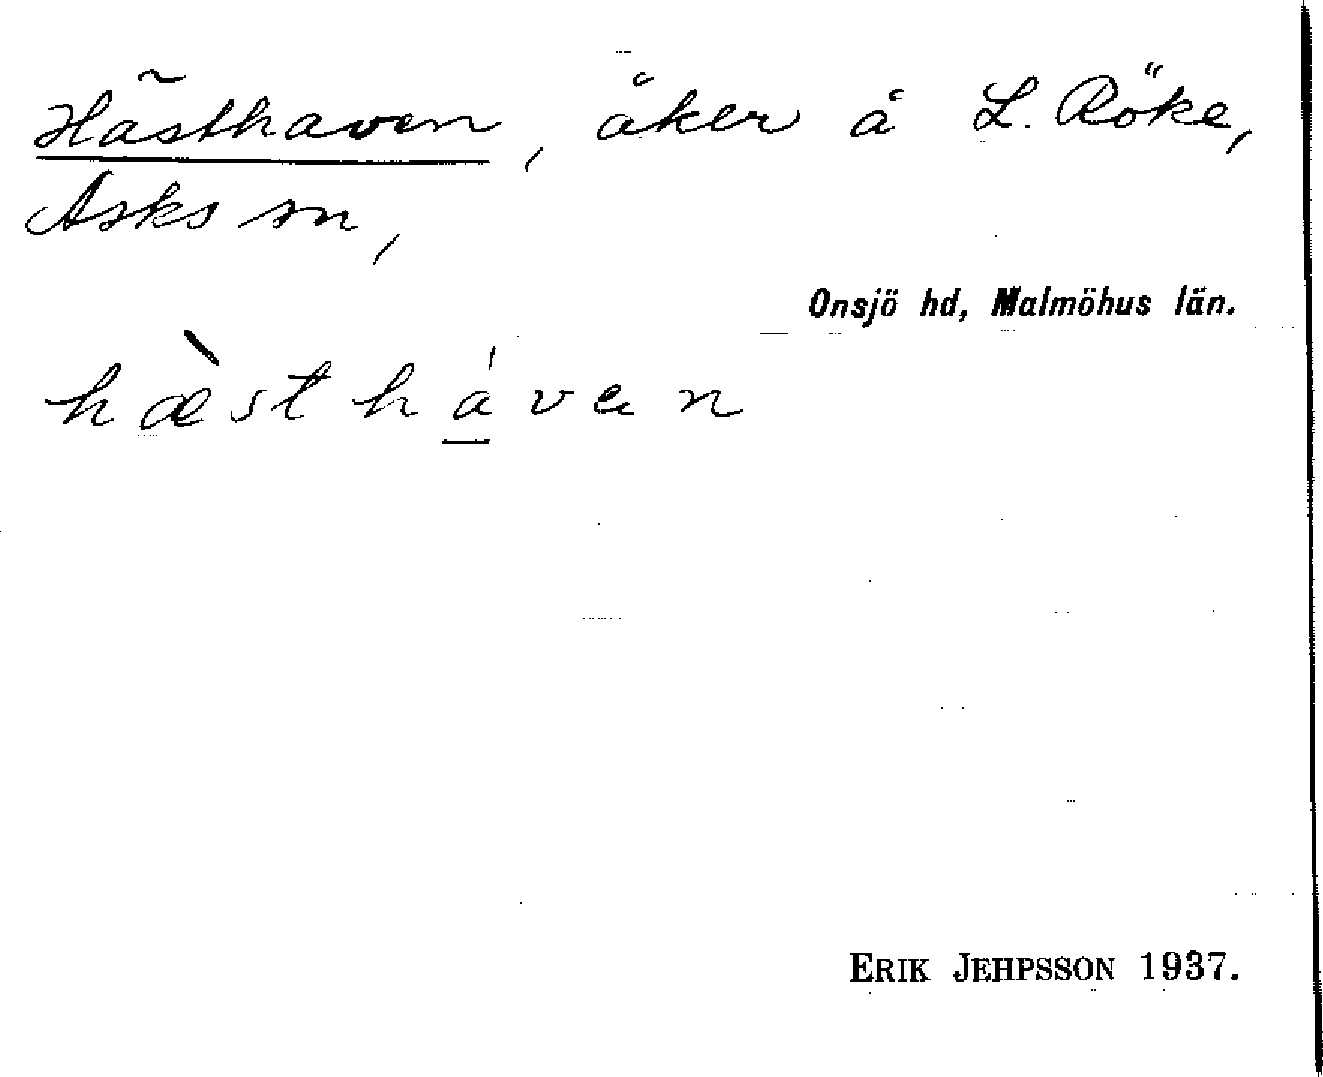 Hästhaven, åker å L. Röke,
Asks sn,
Onsjö hd, Malmöhus län.
hæ̀sthá̱ven
ERIK JEHPSSON 1937.